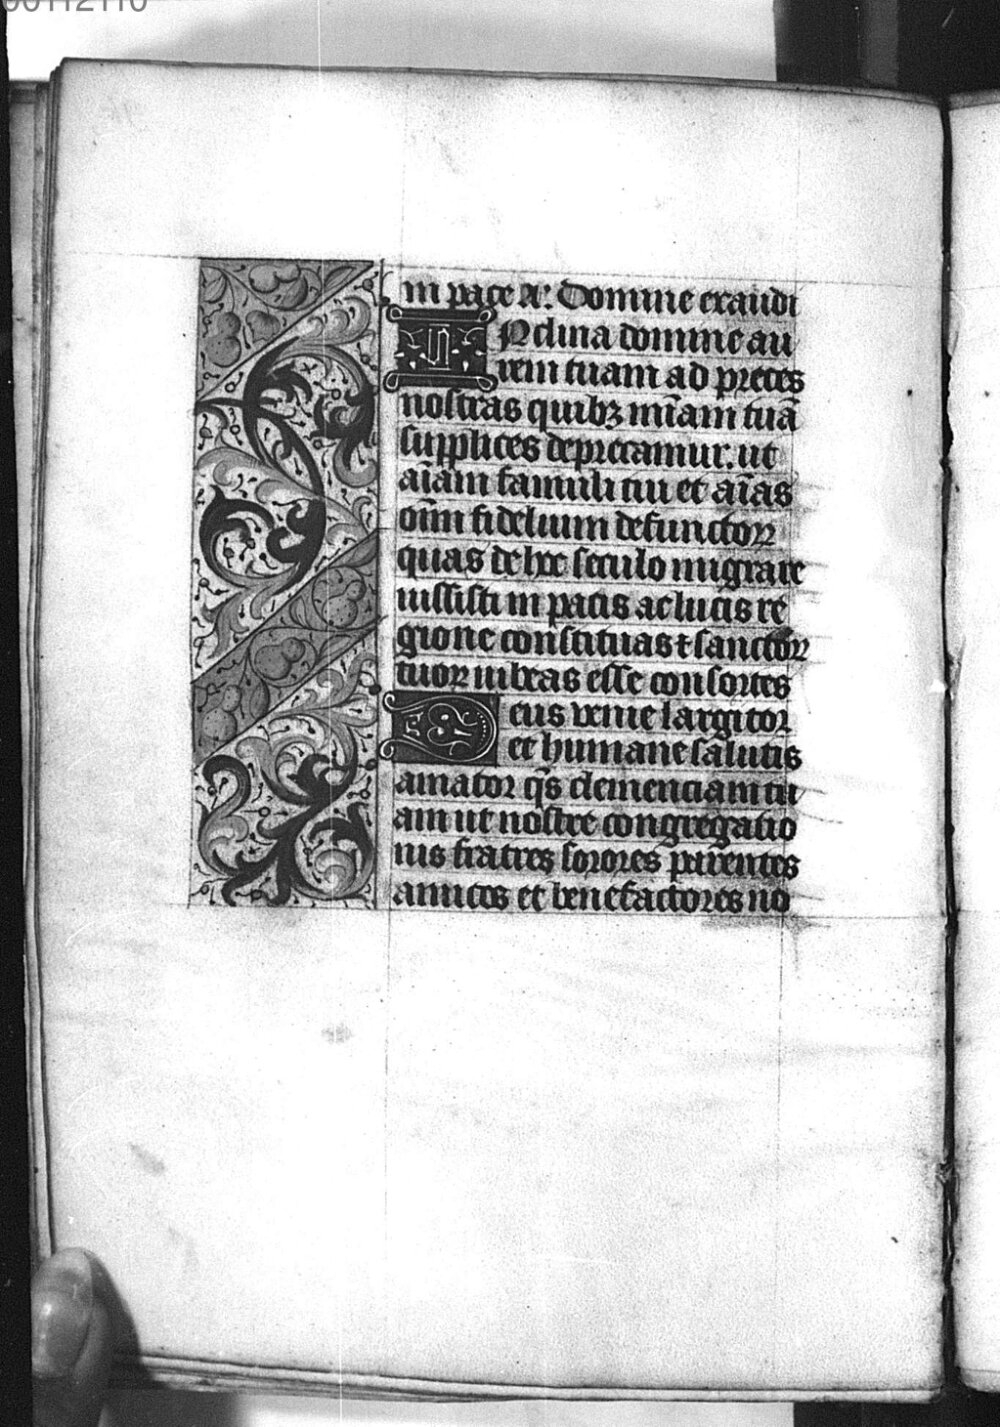 00112110
in pace A. Domine exaudi
INclina domine au
rem tuam ad preces
nostras quibꝫ miãm tuã
supplices deprecamur. ut
aĩam famuli tui et aĩas
oĩm fidelium defunctoꝝ
quas de hoc seculo migrare
iussisti in pacis ac lucis re
gione constituas ⁊ sanctoꝝ
tuoꝝ iubeas esse consortes
Deus venie largitor
et humane salutis
amator q̃s clemenciam tu
am ut nostre congregatio
nis fratres sorores parentes
amicos et benefactores no